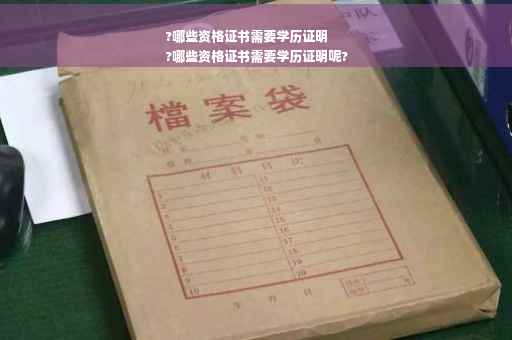 ?哪些资格证书需要学历证明
?哪些资格证书需要学历证明呢?
檔案袋
材料目次
1
2
3
4
5
6
7
8
9
10
11
12
13
14
15
16
17
18
19
20
年 月 日